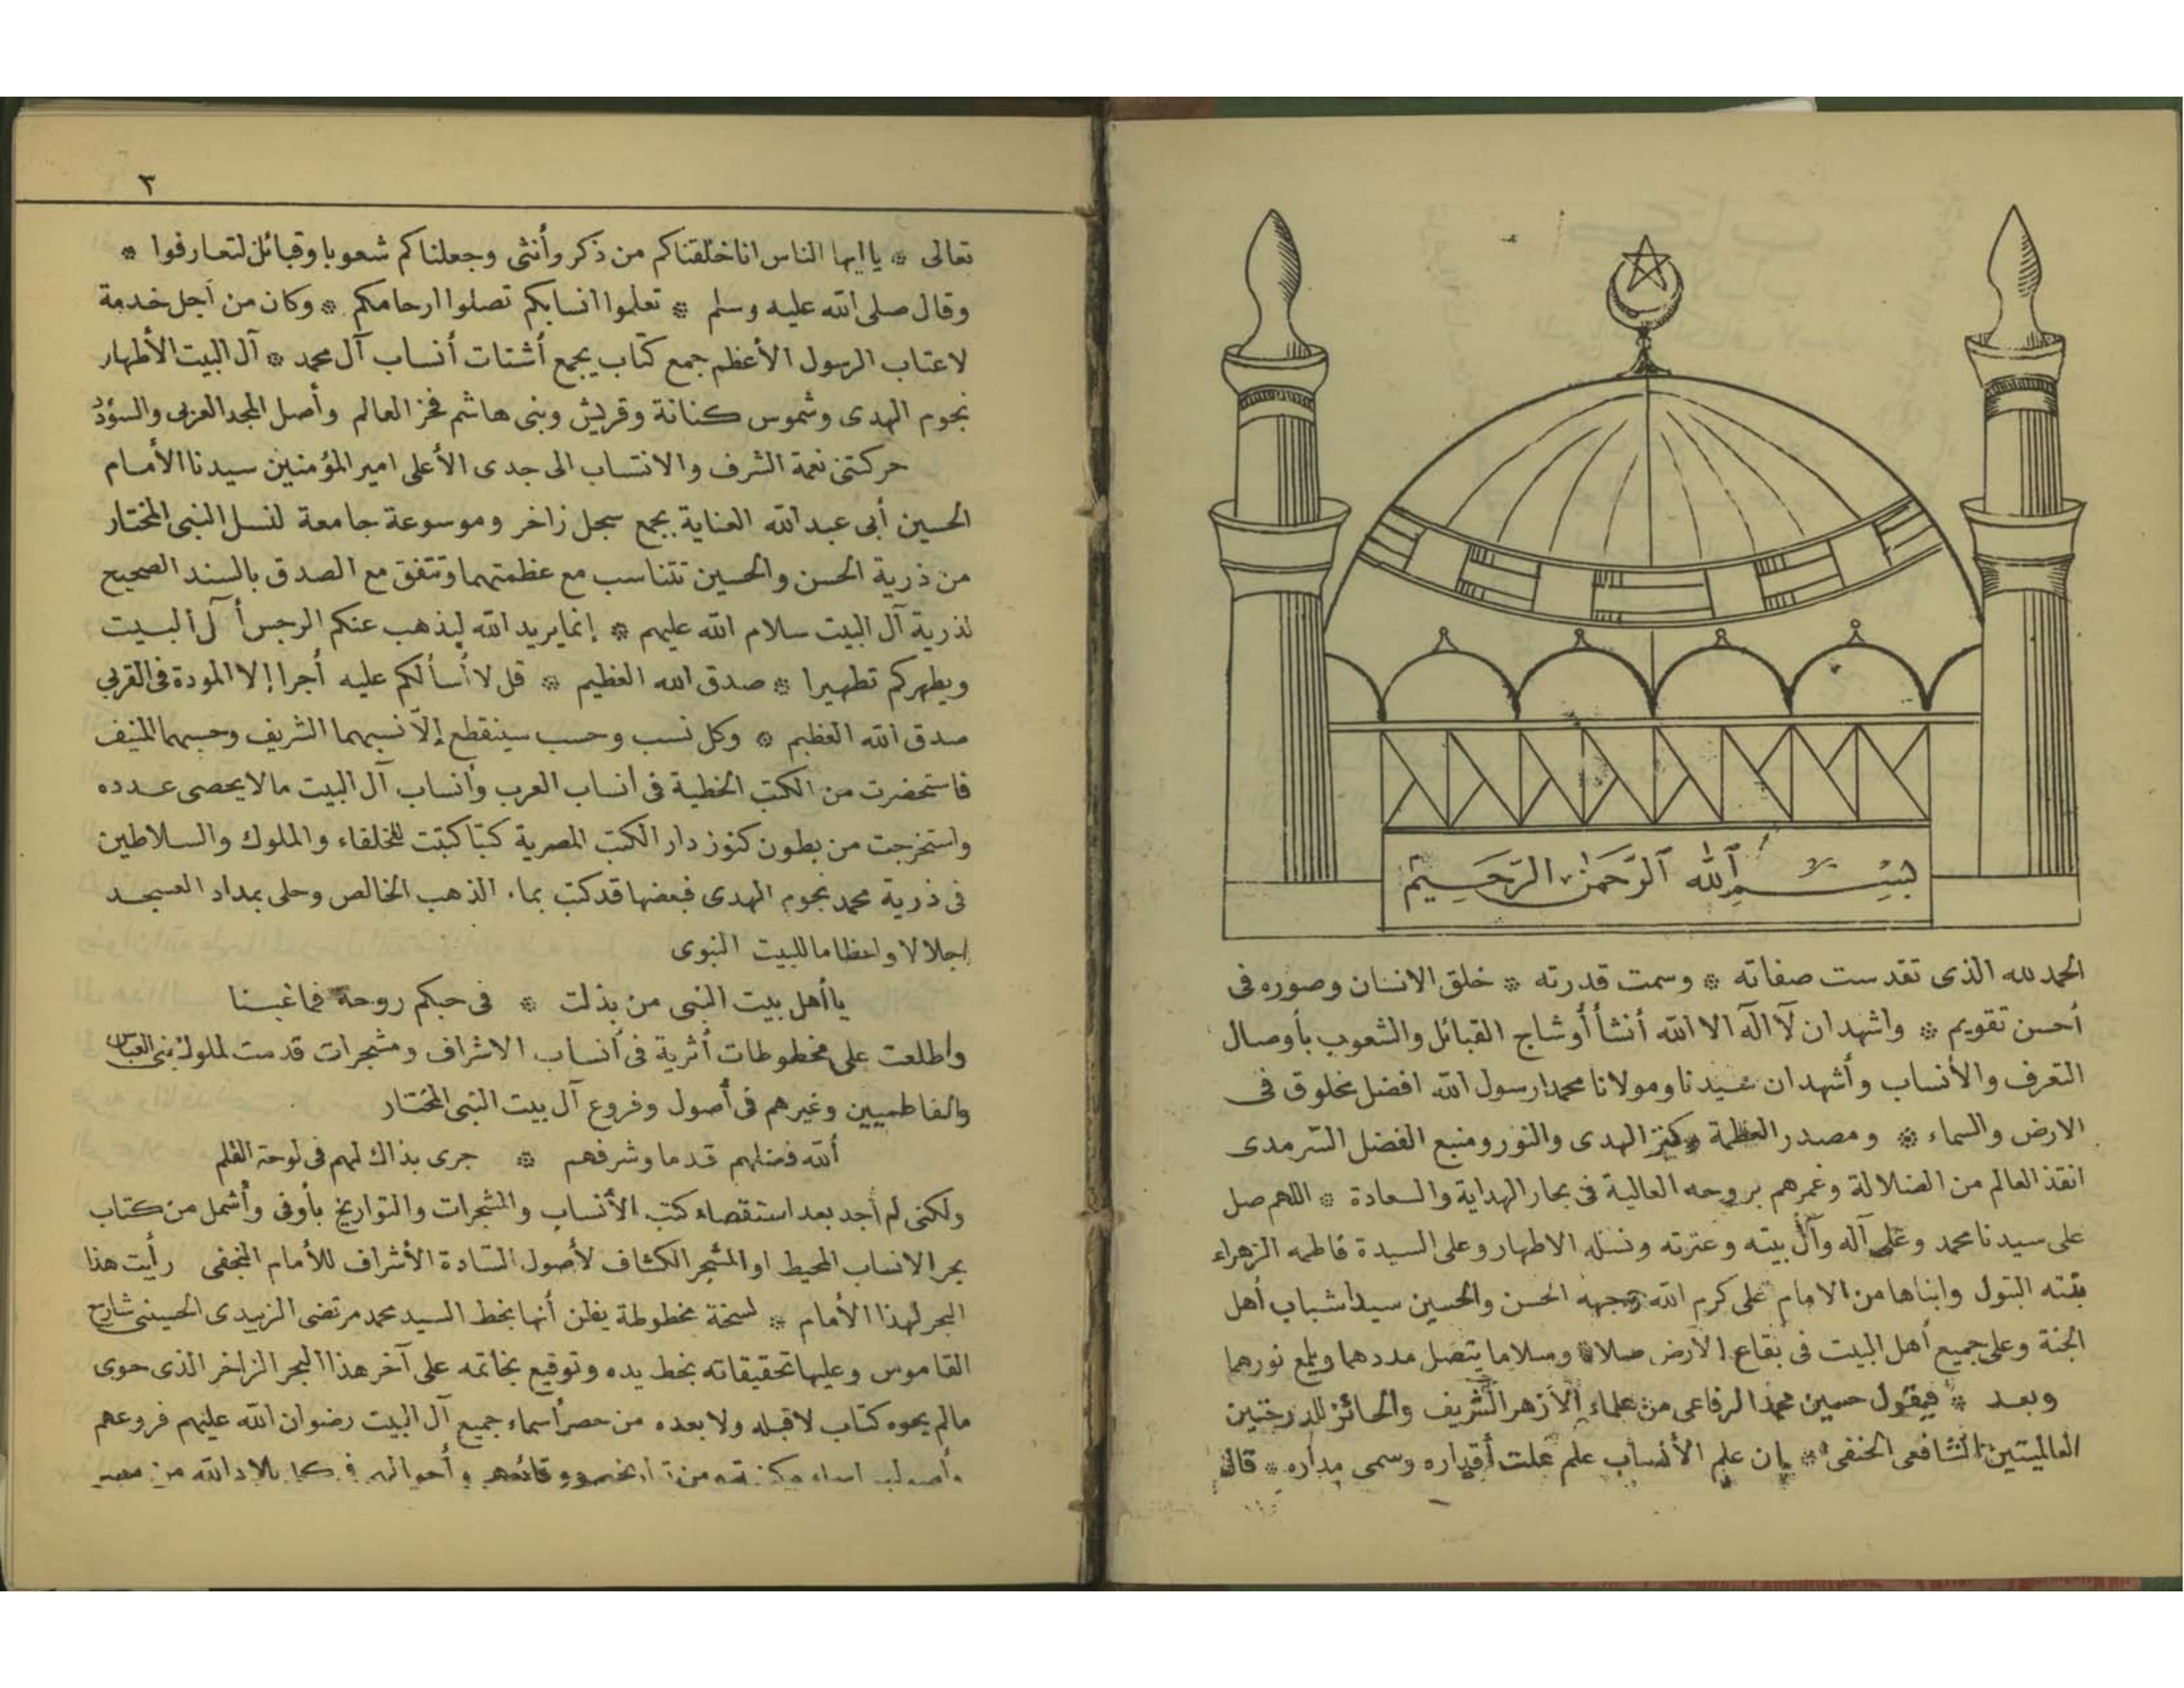 بسم الله الرحمن الرحيم
الحمد لله الذى تقدست صفاته * وسمت قدرته * خلق الانسان وصوره فى
أحسن تقويم * واشهد ان لا اله الا الله أنشأ أوشاج القبائل والشعوب بأوصال
التعرف والأنساب وأشهد ان سيدنا ومولانا محمدا رسول الله افضل مخلوق فى
الارض والسماء * ومصدر العظمة وكنز الهدى والنور ومنبع الفضل السرمدى
انقذ العالم من الضلالة وغمرهم بروحه العالية فى بحار الهداية والسعادة * اللهم صل
على سيدنا محمد وعلى آله وآل بيته وعترته ونسله الاطهار وعلى السيدة فاطمه الزهراء
بنته البتول وابناها من الامام على كرم الله وجهه الحسن والحسين سيدا شباب أهل
الجنة وعلى جميع أهل البيت فى بقاع الأرض صلاة وسلاما يتصل مددهما ويلمع نورهما
وبعد * فيقول حسين محمد الرفاعى من علماء الأزهر الشريف والحائز للدرجتين
العالميتين الشافعى الحنفى * بان علم الأنساب علم علت أقداره وسمى مداره * قال
٣
تعالى * يا ايها الناس انا خلقناكم من ذكر وأنثى وجعلناكم شعوبا وقبائل لتعارفوا *
وقال صلى الله عليه وسلم * تعلموا انسابكم تصلوا ارحامكم * وكان من أجل خدمة
لاعتاب الرسول الأعظم جمع كتاب يجمع أشتات أنساب آل محمد * آل البيت الأطهار
نجوم الهدى وشموس كنانة وقريش وبنى هاشم فخر العالم وأصل المجد العربى والسؤدد
حركتنى نعمة الشرف والانتساب الى جدى الأعلى امير المؤمنين سيدنا الأمام
الحسين أبى عبد الله العناية بجمع سجل زاخر وموسوعة جامعة لنسل النبى المختار
من ذرية الحسن والحسين تتناسب مع عظمتهما وتتفق مع الصدق بالسند الصحيح
لذرية آل البيت سلام الله عليهم * إنما يريد الله ليذهب عنكم الرجس أهل البيت
ويطهركم تطهيرا * صدق الله العظيم * قل لا أسألكم عليه أجرا إلا المودة فى القربى
صدق الله العظيم * وكل نسب وحسب سينقطع إلا نسبهما الشريف وحسبهما المنيف
فاستحضرت من الكتب الخطية فى انساب العرب وأنساب آل البيت مالا يحصى عدده
واستخرجت من بطون كنوز دار الكتب المصرية كتبا كتبت للخلفاء والملوك والسلاطين
فى ذرية محمد نجوم الهدى فبعضها قد كتب بماء الذهب الخالص وحلى بمداد العسجد
إجلالا واعظاما للبيت النبوى
يا أهل بيت النبى من بذلت * فى حبكم روحه فما غبنا
واطلعت على مخطوطات أثرية فى أنساب الاشراف ومشجرات قدمت لملوك بنى العباس
والفاطميين وغيرهم فى أصول وفروع آل بيت النبى المختار
ألله فضلهم قدما وشرفهم * جرى بذاك لهم فى لوحة القلم
ولكنى لم أجد بعد استقصاء كتب الأنساب والمشجرات والتواريخ بأوفى وأشمل من كتاب
بحر الانساب المحيط او المشجر الكشاف لأصول السادة الأشراف للأمام النجفى رأيت هذا
البحر لهذا الأمام * نسخة مخطوطة يظن أنها بخط السيد محمد مرتضى الزبيدى الحسينى شارح
القاموس وعليها تحقيقاته بخط يده وتوقيع بخاتمه على آخر هذا البحر الزاخر الذى حوى
مالم يحوه كتاب لا قبله ولا بعده من حصر أسماء جميع آل البيت رضوان الله عليهم فروعهم
وأحوالهم فى كل بلاد الله من